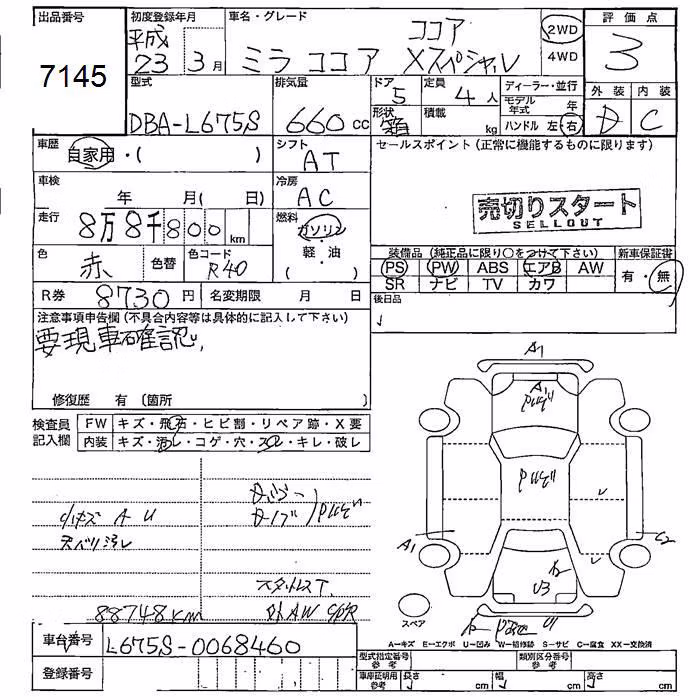 出品番号
7145
初度登録年月
平成
23 3月
車名・グレード
ココア
ミラ ココア Xスペシャル
2WD
4WD
評価点
3
外装 内装
D C
型式
DBA-L675S
排気量
660 cc
ドア
5
定員
4人
形状
箱
積載
kg
ディーラー・並行
モデル年式 年
ハンドル 左・右
車歴
自家用・( )
シフト
AT
セールスポイント (正常に機能するものに限ります)
売切りスタート
SELLOUT
車検
年 月( 日)
冷房
AC
走行
8万8千800 km
燃料
ガソリン
軽・油
( )
色
赤
色替
色コード
R40
装備品 (純正品に限り○をつけて下さい)
PS PW ABS エアB AW
SR ナビ TV カワ
新車保証書
有・無
R券
8730円
名変期限 月 日
後日品
注意事項申告欄 (不具合内容等は具体的に記入して下さい)
要現車確認
修復歴 有 〔箇所 〕
検査員記入欄
FW キズ・飛石・ヒビ割・リペア跡・X要
内装 キズ・汚レ・コゲ・穴・スレ・キレ・破レ
小キズ A U
天バリ汚レ
スタットレスT.
88748km
A1
A1
A1
C2
A2
U3
スペア
A―キズ E―エクボ U―凹み W―補修跡 S―サビ C―腐食 XX―交換済
車台番号
L675S-0068460
登録番号
型式指定番号
参考
類別区分番号
参考
車庫証明用
参考
長さ cm
幅 cm
高さ cm